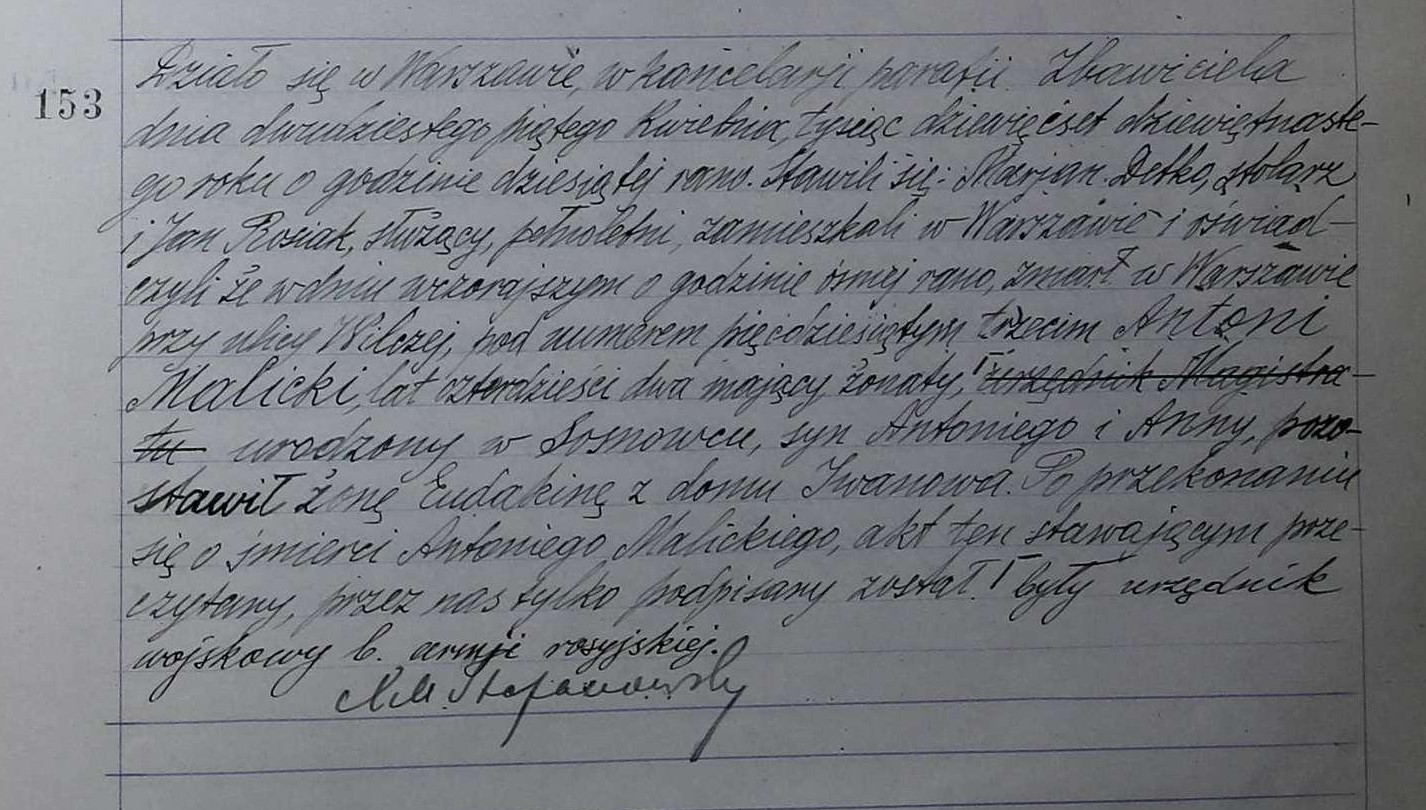 153
Działo się w Warszawie, w kancelarji parafii Zbawiciela
dnia dwudziestego piątego Kwietnia, tysiąc dziewięćset dziewiętnaste-
go roku o godzinie dziesiątej rano. Stawili się: Marjan Detko, stolarz
i Jan Rosiak, służący, pełnoletni, zamieszkali w Warszawie i oświad-
czyli że w dniu wczorajszym o godzinie ósmej rano, zmarł w Warszawie
przy ulicy Wilczej, pod numerem pięćdziesiątym trzecim Antoni
Malicki, lat czterdzieści dwa mający, żonaty, urzędnik Magistra-
tu urodzony w Sosnowcu, syn Antoniego i Anny, pozo-
stawił żonę Eudakinę z domu Iwanowa. Po przekonaniu
się o śmierci Antoniego Malickiego, akt ten stawającym prze-
czytany, przez nas tylko podpisany został. były urzędnik
wojskowy b. armji rosyjskiej.